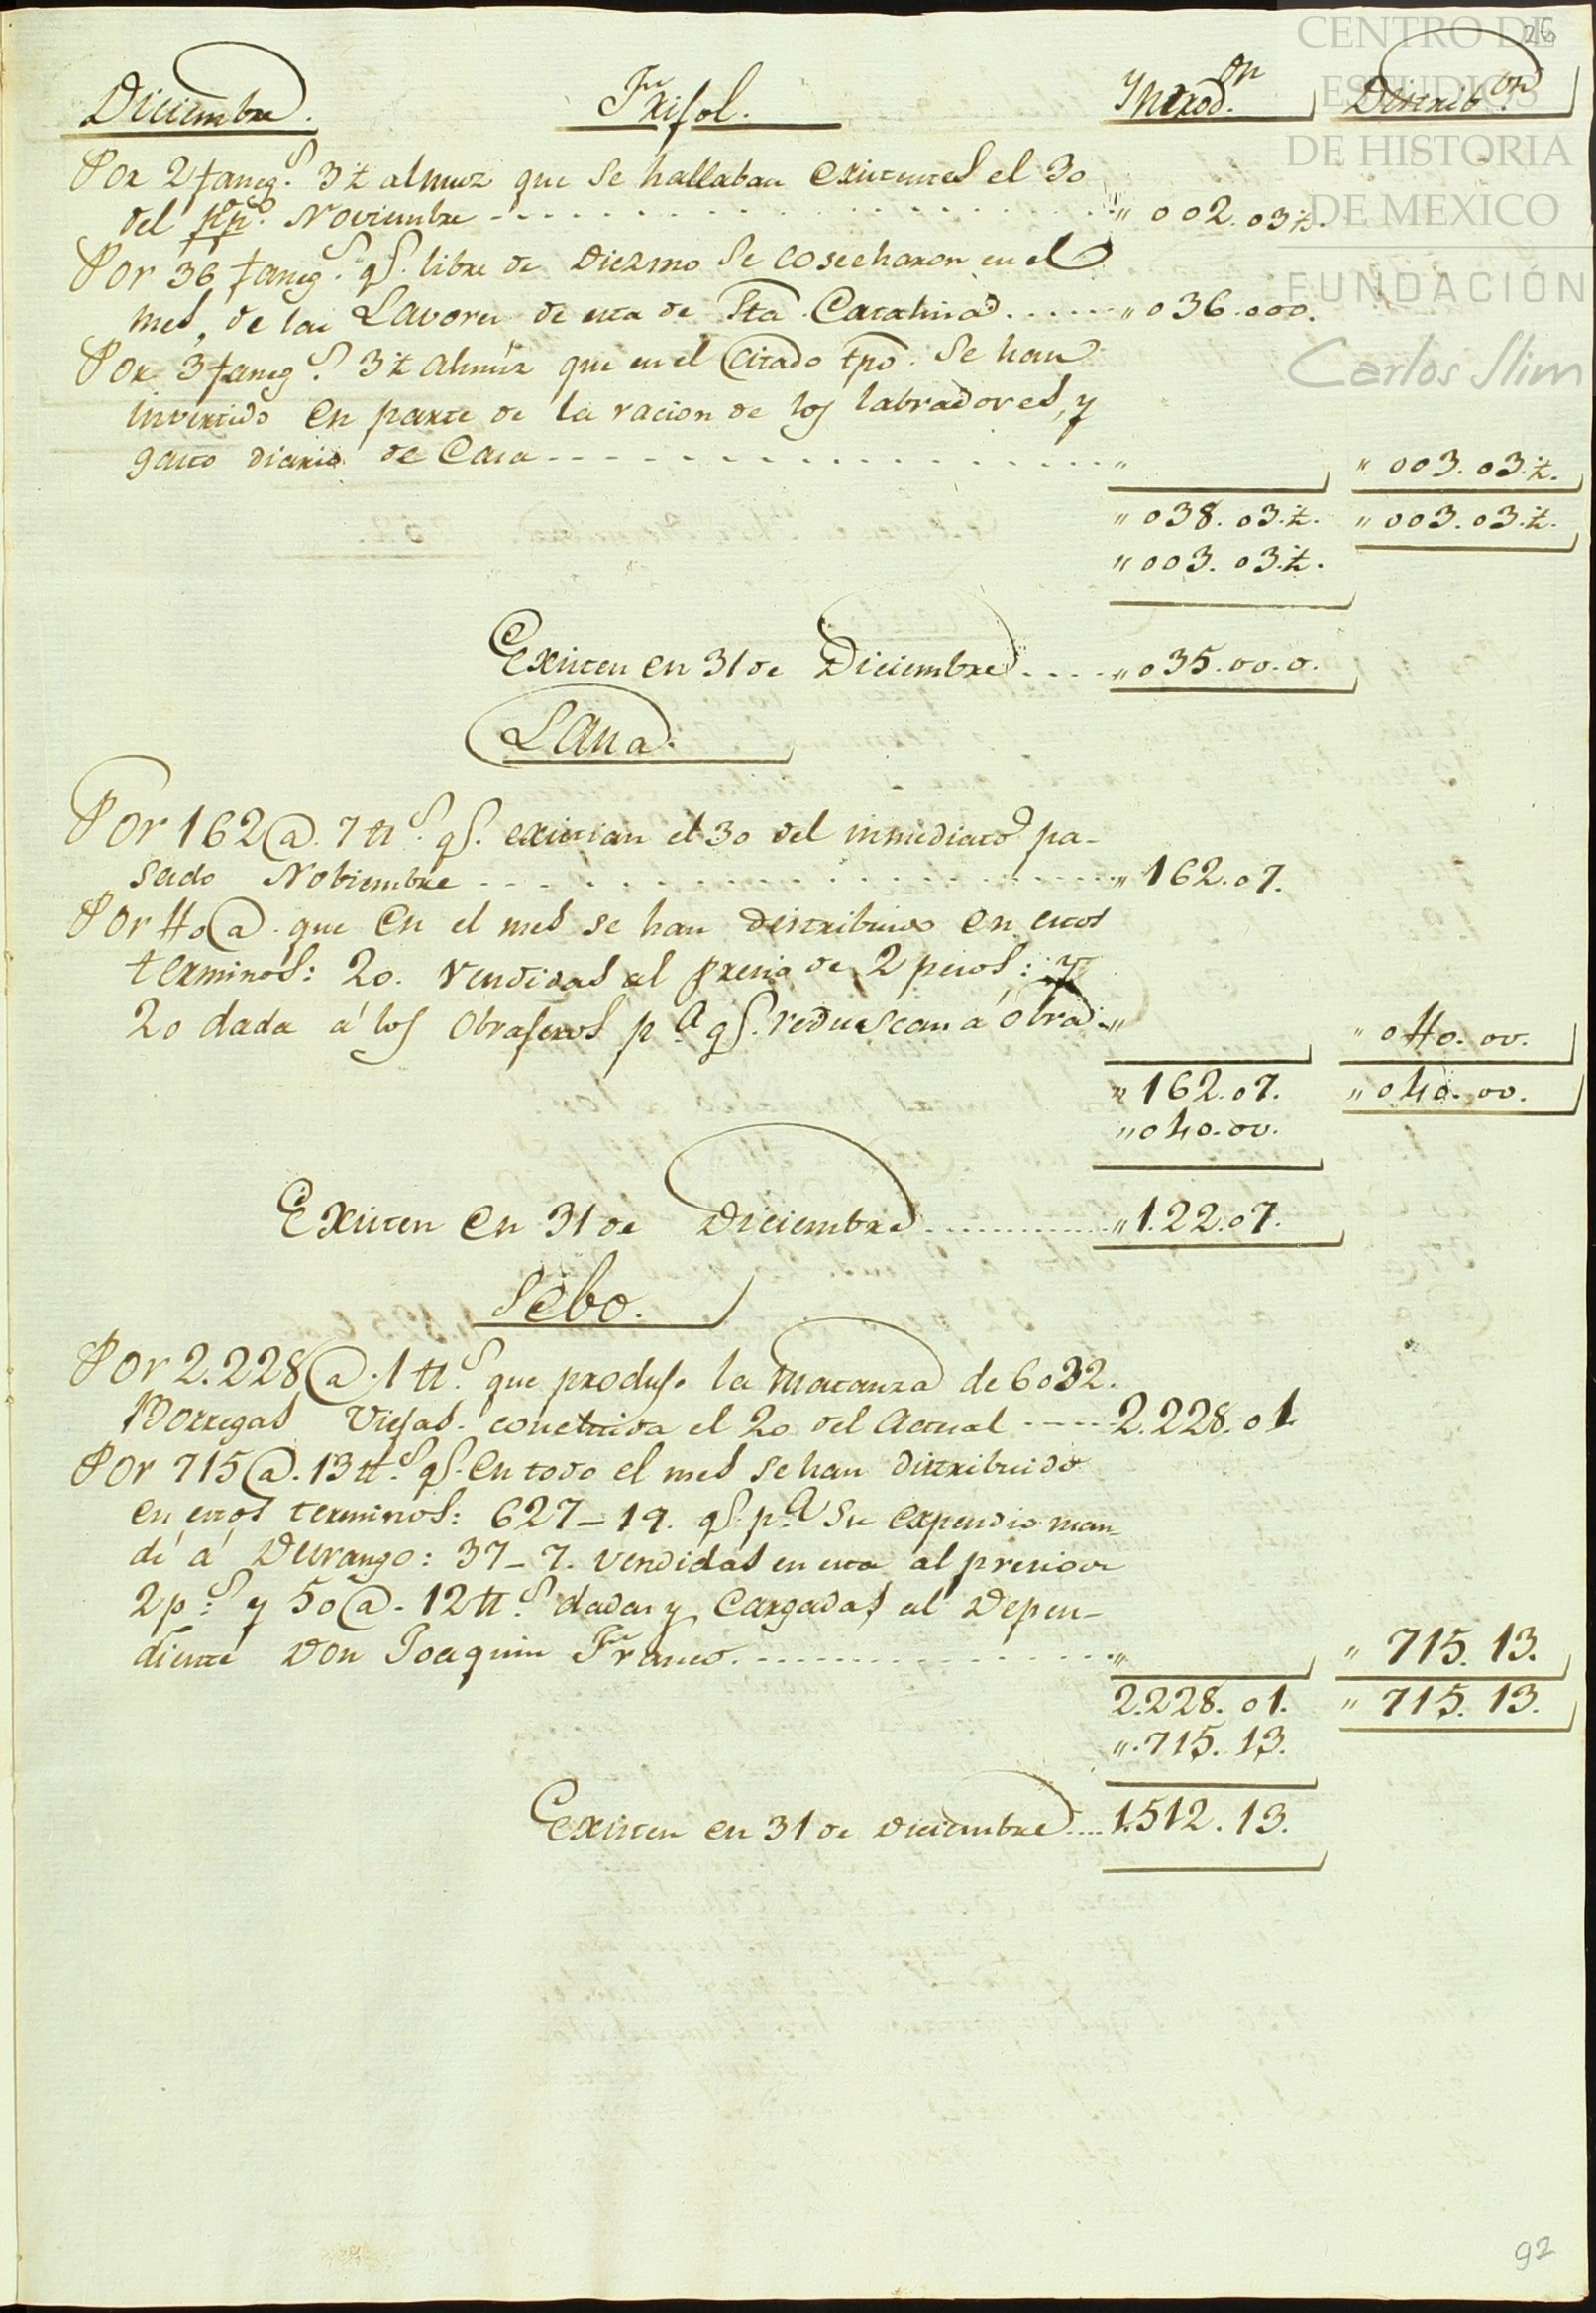 26
CENTRO DE
ESTUDIOS
DE HISTORIA
DE MEXICO
FUNDACIÓN
Carlos Slim
Diciembre. Frisol. Introd.on Distrib.on
Por 2 faneg.s 3½ almuz que se hallaban existentes el 30
del pp.do Noviembre - - - - " 002. 03½.
Por 36 faneg.s q.e libre de Diezmo se cosecharon en el
mes, de las Lavores de esta de Sta. Catarina. . . . . . " 036.000.
Por 3 faneg.s 3½ almuz que en el citado tpo. se han
invertido en parte de la racion de los labradores, y
gasto diario de Casa - - - - " " 003. 03.½.
" 038. 03.½. " 003. 03.½.
" 003. 03.½.
Existen en 31 de Diciembre . . . . " 035.00.0.
Lana.
Por 162 @. 7 tt.s q.e existian el 30 del inmediato pa-
sado Nobiembre - - - - " 162.07.
Por 40 @. que en el mes se han distribuido en estos
terminos: 20. vendidas al precio de 2 pesos: y
20 dada á los obrageros p.a q.e reduscan á obra. " " 040. 00.
" 162.07. " 040. 00.
" 040.00.
Existen en 31 de Diciembre . . . . " 122.07.
Sebo.
Por 2.228 @. 1 tt.s que produjo la Matanza de 6032.
Borregas Viejas. concluida el 20 del actual - - - - 2.228.01.
Por 715 @. 13 tt.s q.e en todo el mes se han distribuido
en estos terminos: 627-19. q.e p.a su expendio man-
dé á Durango: 37-7. vendidas en esta al precio de
2 p.s y 50 @. 12 tt.s dadas y Cargadas al Depen-
diente Don Joaquin Franco. . . . . " " 715. 13.
2.228. 01. " 715. 13.
". 715. 13.
Existen en 31 de Diciembre . . . . 1.512. 13.
92